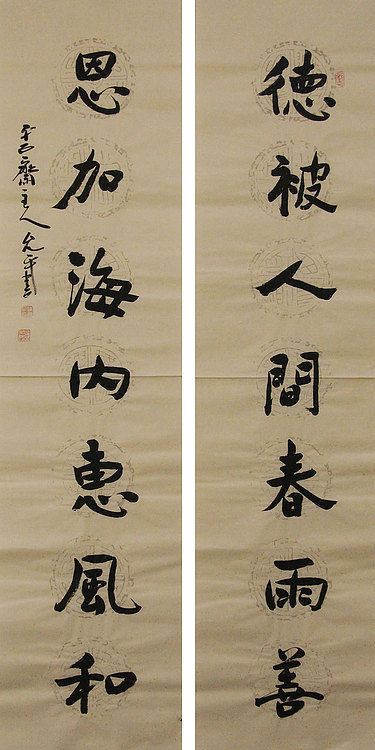 德被人間春雨善
恩加海内惠風和
齋主人允平書